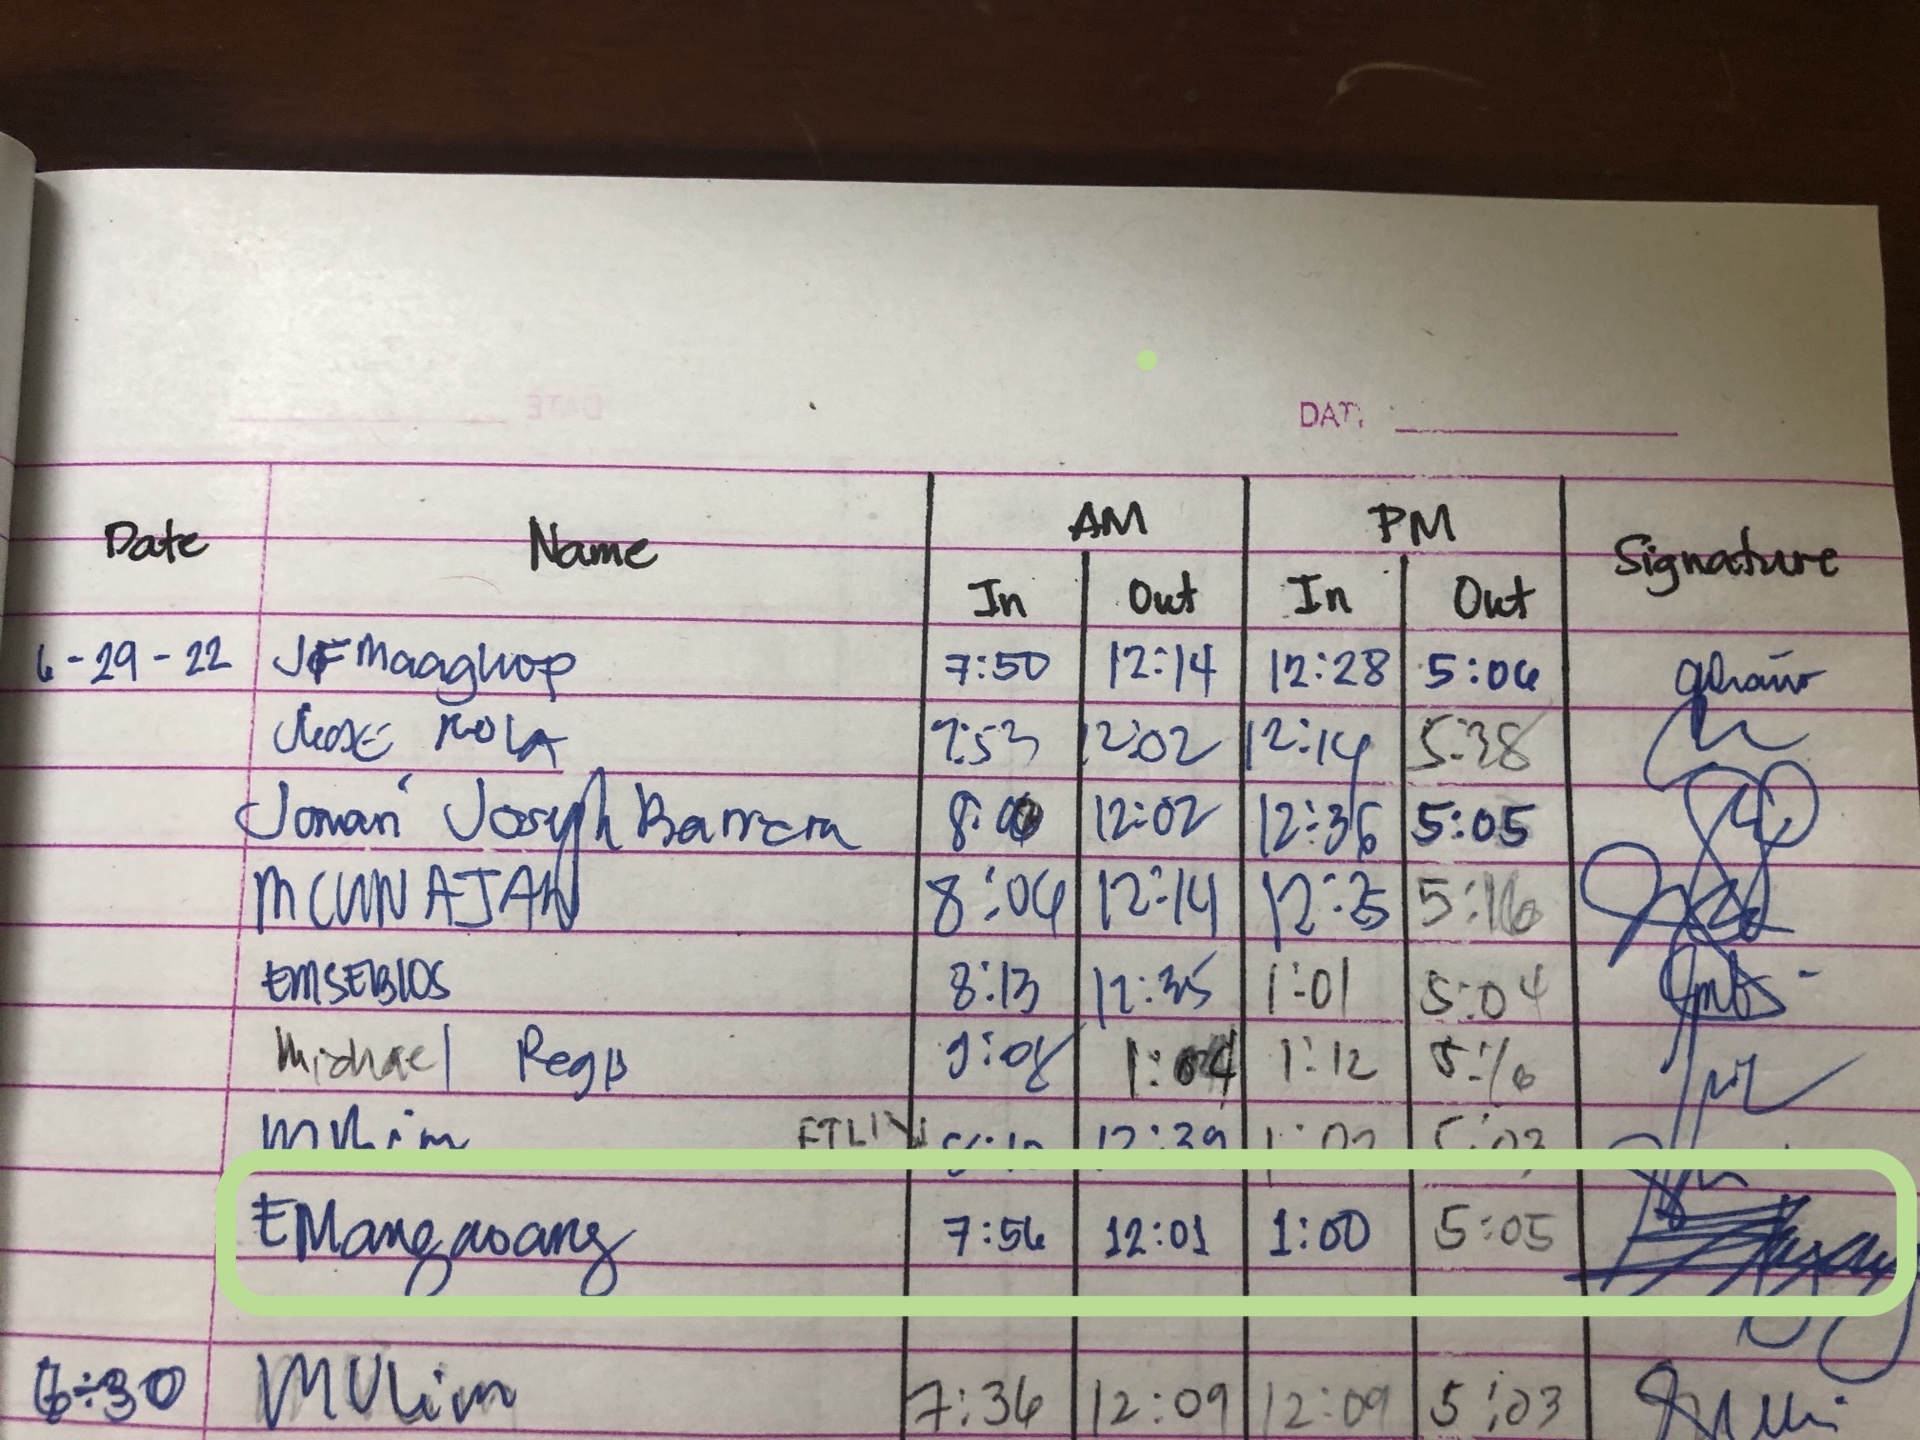 DATE
DAT
Date Name AM PM Signature
In Out In Out
6-29-22 JFMaaghop 7:50 12:14 12:28 5:06
JOSE ROLA 7:53 12:02 12:14 5:38
Jomari Joseph Barrera 8:00 12:02 12:36 5:05
8:04 12:14 12:25 5:16
EMSEBIOS 8:13 12:35 1:01 5:04
Michael 9:08 1:04 1:12 5:16
MVLim 12:39 1:02 5:03
EMangaoang 7:56 12:01 1:00 5:05
6-30 MVLim 7:36 12:09 12:09 5:03